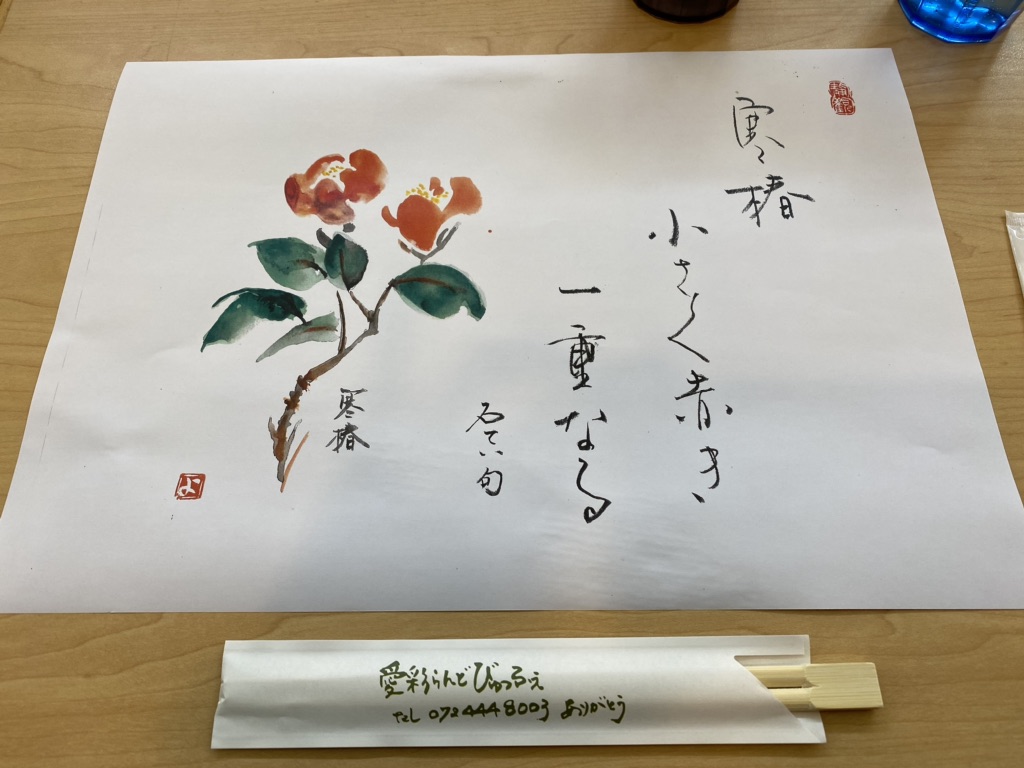 寒椿
小さく赤き
一重なる
句
寒椿
よ
愛彩らんどびゅっふぇ
TEL 072 444 8003 ありがとう